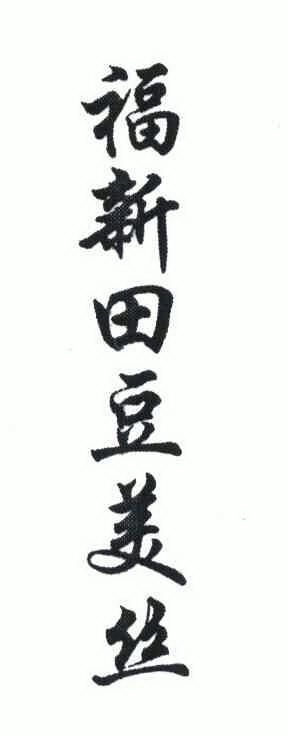 福新田豆美丝